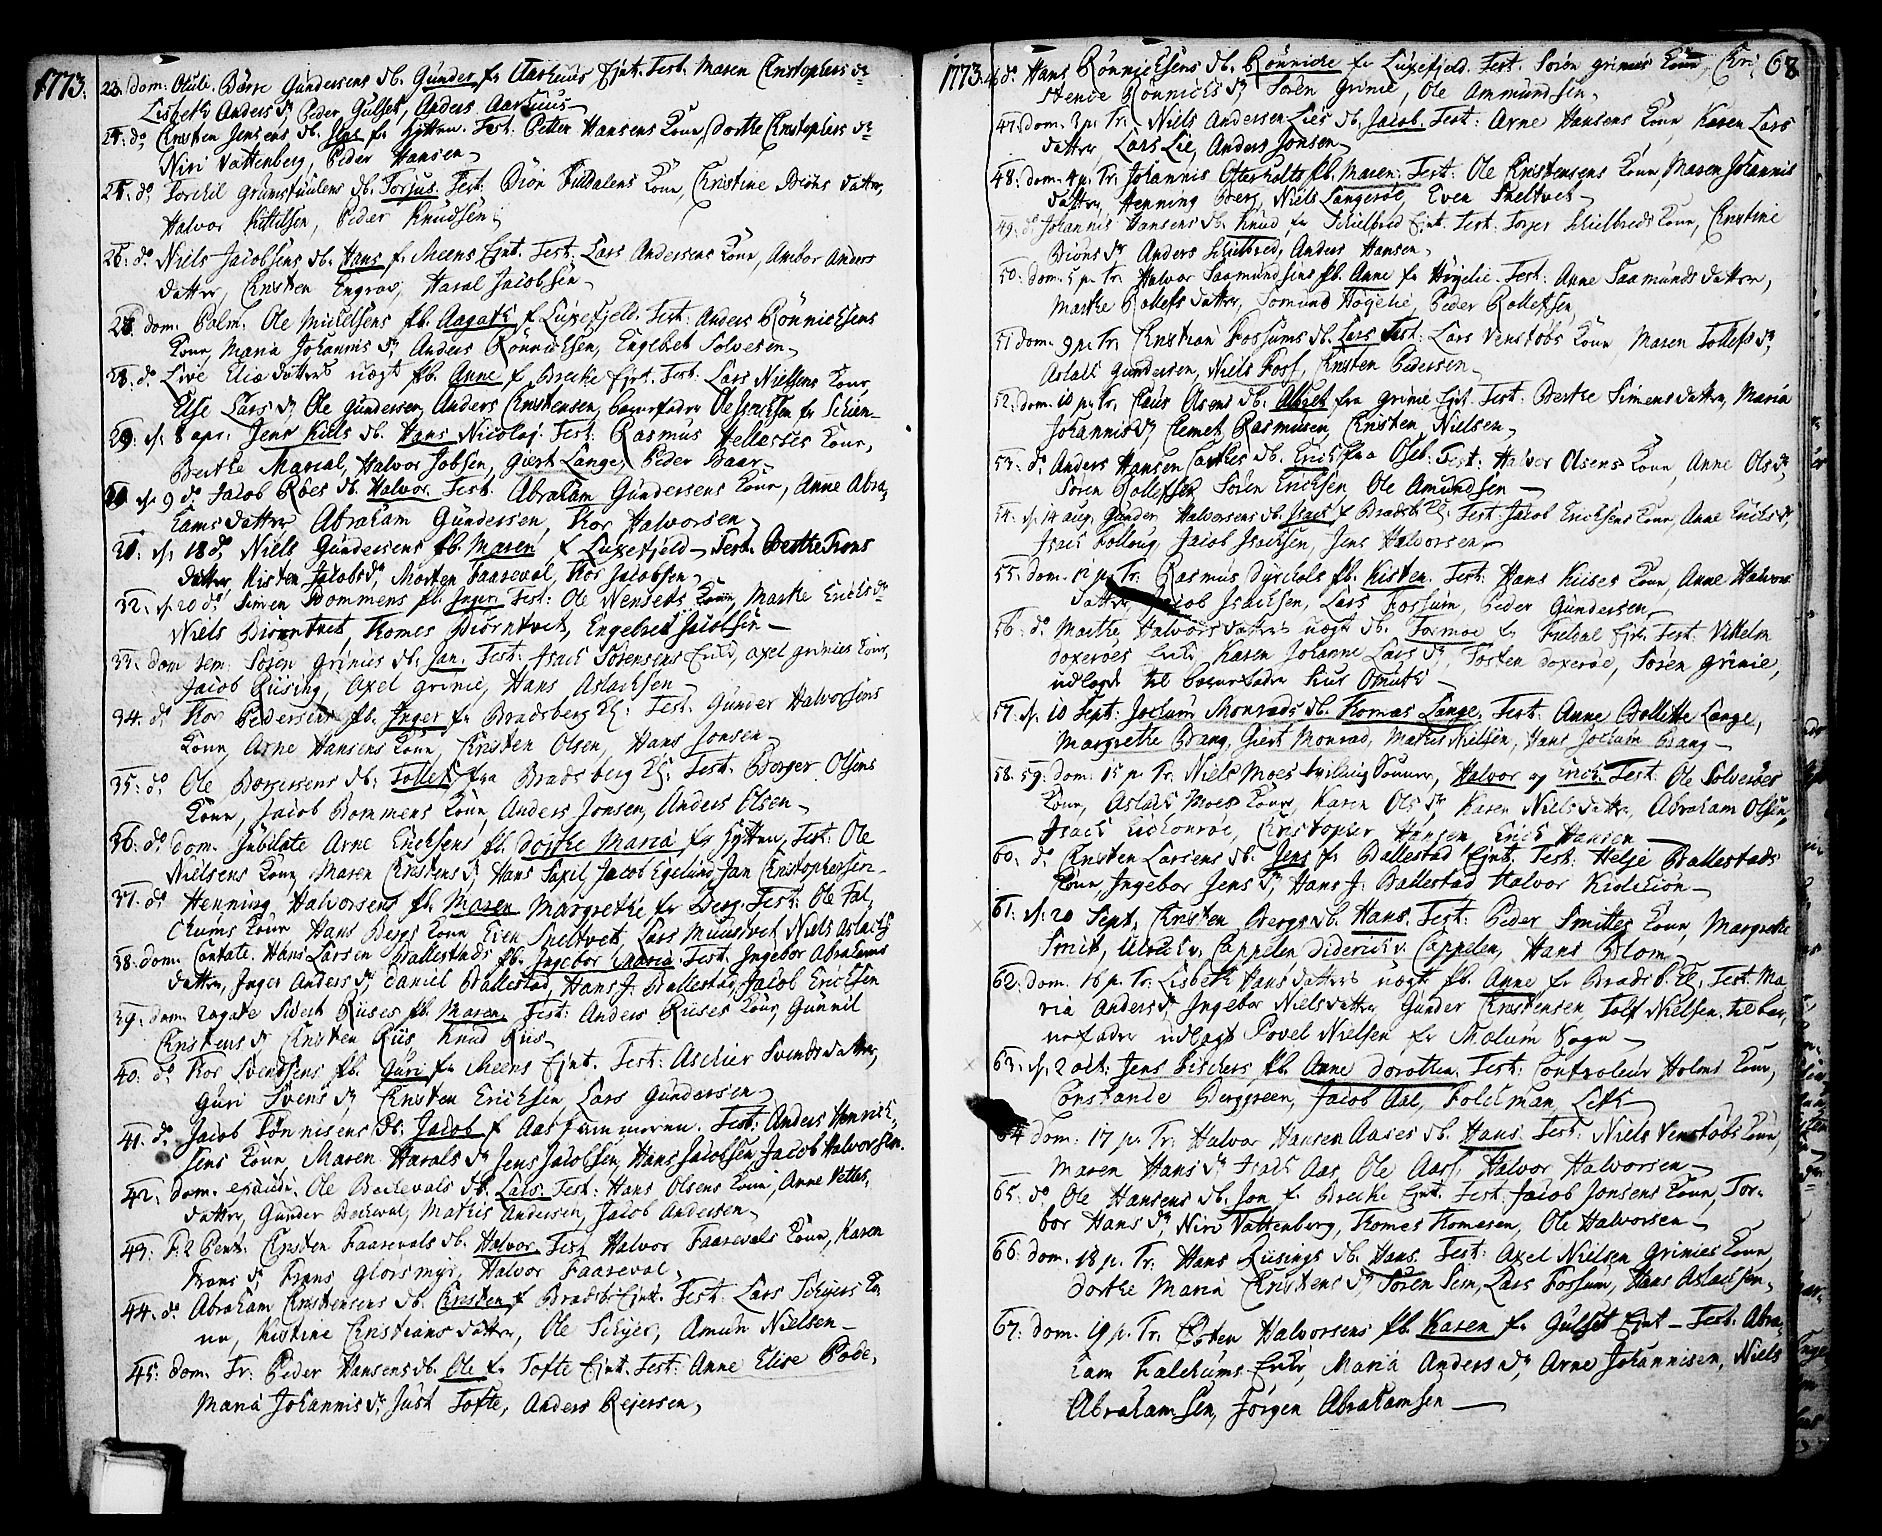 1773.
23. dom: Oculi. Börre Gundersens db. Gunder fr Aarhuus Ejnt. Test. Maren Christophers dr
Lisbeth Anders dr, Peder Gulset, Anders Aarhuus
24: do Christen Jensens db. fr Hytten. Test: Petter Hansens Konn, Dorthe Christophers dr
Niri Vattenberg, Peder Hansen
25: do Torchil Grønstuulens db. Torjus. Test. Biön Fieldalens Konn, Christine Biöns datter,
Halvor Kittilsen, Peder Knudsen
26: do Niels Jacobsens db. Hans fr Meens Ejnt. Test. Lars Andersens Konn, Ambor Anders
datter, Christen Engrav, Haral Jacobsen
dom. Palm. Ole Mickelsens pb. Aagath f Luxefjeld. Test: Anders Rönnichsens
Konn, Maria Johannis dr, Anders Rönnichsen, Engebret Solvesen
28. do Live datters uægt pb. Anne f Brecke Ejnt. Test: Lars Nielsens Konn
Else Lars dr, Ole Gundersen, Anders Christensen, barnefader Ole Isachsen fr Schien
29: d. 8 apr: Jens Kiels db. Hans Nicolaj. Test: Rasmus Konn,
Berthe Marcal, Halvor Jobsen, Giert Lange, Peder Baar
d. 9 do Jacob Roes db. Halvor. Test. Abraham Gundersens Konn, Anne Abra-
hams datter Abraham Gundersen, Thor Halvorsen
d. 18 do Niels Gundersens pb. Maren f Luxefjeld. Test. Berthe Frans
datter, Kisten Jacobs dr, Morten Faareval, Thor Jacobsen
32: d. 20 do Simen Bommens pb. Inger. Test: Ole Konn, Marthe Erichs dr
Niels Biörntvet, Thomes Biörntvet, Engebret Jacobsen
33: dom sem: Sören Grinies db. Jan. Test: Isach Sörensens Enke, Axel Grinies Konn,
Jacob Riising, Axel Grinie, Hans Aslachsen
34. do Thor Pedersens pb. Inger fr Bradsberg Kl: Test: Gunder Halvorsens
Konn, Arne Hansens Konn, Christen Olsen, Hans Jonsen
35: do Ole Borgersens db: Tollef fra Bradsberg Kl: Test: Borger Olsens
Konn, Jacob Bommens Konn, Anders Jonsen, Anders Olsen
36: do dom. Jubilate Arne Erichsens pb. Dorthe Maria fr Hytten, Test: Ole
Nielsens Konn, Maren Christens dr, Hans Saxil, Jacob Egelund, Jan Christophersen
37: do Henning Halvorsens pb. Maren Margrethe fr Berg. Test: Ole Fal-
chums Konn Hans Bergs Konn Even Sneltvet, Lars Muustvet, Niels Aslachs
38: dom. Cantate. Hans Larsen Ballestads pb. Ingebor Maria. Test. Ingebor Abrahams
datter, Inger Anders dr, Daniel Ballestad, Hans J. Ballestad, Jacob Erichsen
39: dom. Rogate Sivert Riises pb. Maren. Test: Anders Riises Konn, Gunnil
Christens dr Christen Riis, Knud Riis
40: do Thor Svendsens pb. Guri fr Meens Ejnt. Test. Aschier Svends datter,
Guri Svens dr, Christen Erichsen, Lars Gundersen
41: do Jacob Tönnisens db: Jacob f Aas Test: Anders Henrich-
sens Konn, Maren Harals dr Jens Jacobsen, Hans Jacobsen, Jacob Halvorsen.
42: dom. exaudi. Ole Beckevals db. Lars. Test: Hans Olsens Konn, Anne Vettes-
datter, Gunder Beckeval, Mathis Andersen, Jacob Andersen
43: F. 2 Pent. Christen Faarevals db. Halvor. Test. Halvor Faarevals Konn, Karen
Frans dr, Frans Glorsmyr, Halvor Faareval
44: do Abraham Christensens db. Christen f Bradsb: Ejnt. Test. Lars Ko
nn, Kistine Christians datter, Ole Amun Nielsen
45: dom. Tr: Peder Hansens db. Ole fr Tofte Ejnt. Test: Anne Elise Bode,
Maria Johannis dr, Just Tofte, Anders Rejersen,
1773.
68
46 do Hans Rönnichsens db. Rönniche fr Luxefjeld. Test. Sören Grinies Konn, Chri
stense Rönnichs dr, Sören Grinie, Ole Ammundsen
47: dom. 3 p. Tr. Niels Andersen Lies db. Jacob. Test: Arne Hansens Konn Karen Lars
datter, Lars Lie, Anders Jonsen
48: dom. 4 p. Tr. Johannis pb. Maren. Test: Ole Christensens Konn, Maren Johannis
datter, Henning Berg, Niels Langeröe, Even Sneltvet
49: do Johannis Hansens db. Knud fr Schilfred Ejnt. Test. Torger Schilbreds Konn, Christine
Biöns dr Anders Schilbred, Anders Hansen
50: dom. 5 p. Tr. Halvor Saamundsens pb. Anne fr Högelie. Test: Anne Saamunds datter,
Marthe Rollefs datter, Somund Högelie, Peder Rollefsen,
51 dom. 9 p. Tr. Christian Fossums db. Lars Test: Lars Venstöbs Konn Maren Tollefs dr,
Aslach Gundersen, Niels Foss, Christen Pedersen
52: dom. 10 p. Tr. Claus Olsens db. Abret fra Grinie Ejnt. Test: Berthe Simens datter, Maria
Johannis dr, Clemet Rasmusen, Christen Nielsen
53: do Anders Hansen db. Erich fra Test: Halvor Olsens Konn, Anne Ols dr,
Sören Rollefsen, Sören Erichsen, Ole Amundsen
54. d. 14 aug. Gunder Halvorsens db. Isach f Bradsb: Kl: Test Jacob Erichsens Konn, Anne Erichs dr,
Isach Follaug, Jacob Isachsen, Jens Halvorsen
55: dom. 12 p. Tr: Rasmus Dyrchols pb. Kisten. Test: Hans Riises Konn, Anne Halvors
datter, Jacob Isachsen, Lars Fossum, Peder Gundersen
56: do Marthe Halvors datters uægt db. Tormoe fr Fieldal Ejt. Test: Vilhelm
Doxeröes Enke, Karen Johanne Lars dr, Torsten Doxeröe, Sören Grinie,
udlagde til barnefader Siur Omuts
57. d. 10 Sept: Jochum Monrads db. Thomas Lange. Test: Anne Bollette Lange,
Margrethe Bang, Giert Monrad, Mathis Nielsen, Hans Jochum Bang
58. 59. dom. 15 p. Tr. Niels Moes tvilling Sönner, Halvor og Erich. Test: Ole Solveröes
Konn, Aslach Moes Konn, Karen Ols dr, Karen Niels datter, Abraham Olsen,
Isach Eichonröe, Christopher Hansen, Erich Hansen
60: do Christen Larsens db. Jens fr Ballestad Ejnt. Test: Helje Ballestads
Konn, Ingebor Jens dr, Hans J: Ballestad Halvor Kideköen
61. d. 20 Sept. Christen Bergs db. Hans. Test: Peder Smittes Konn, Margrethe
Smith, Ulrich v. Cappelen, Diderich v. Cappelen, Hans Blom
62: dom. 16 p. Tr. Lisbeth Hans datters uægt pb. Anne fr Bradsb. Kl. Test: Ma-
ria Anders dr, Ingebor Niels datter, Gunder Christensen, Tolf Nielsen. til bar,
nefader udlagt Povel Nielsen fr Mælum Sogn
63: d. 2 oct: Jens Fischers pb. Anne Dorothea. Test: Controleur Holms Konn,
Constance Berggreen, Jacob Aal, Foldtman, Leth
64 dom: 17 p. Tr: Halvor Hansen Aases db. Hans. Test: Niels Venstöbs Konn,
Maren Hans dr Isach Aas Ole Aas, Halvor Halvorsen
65: do Ole Hansens db. Jon f Brecke Ejnt. Test: Jacob Jonsens Konn, Tor-
bor Hans dr, Niri Vattenberg, Thomes Thomesen, Ole Halvorsen
66: dom. 18 p. Tr: Hans Riisings db. Hans. Test: Axel Nielsen Grinies Konn,
Dorthe Maria Christens dr, Sören Sem, Lars Fossum, Hans Aslachsen,
67: dom. 19 p. Tr: Östen Halvorsens pb. Karen fr Gulset Ejnt. Test. Abra-
ham Falchums Enke, Maria Anders dr, Arne Johannisen, Niels
Abrahamsen, Jörgen Abrahamsen